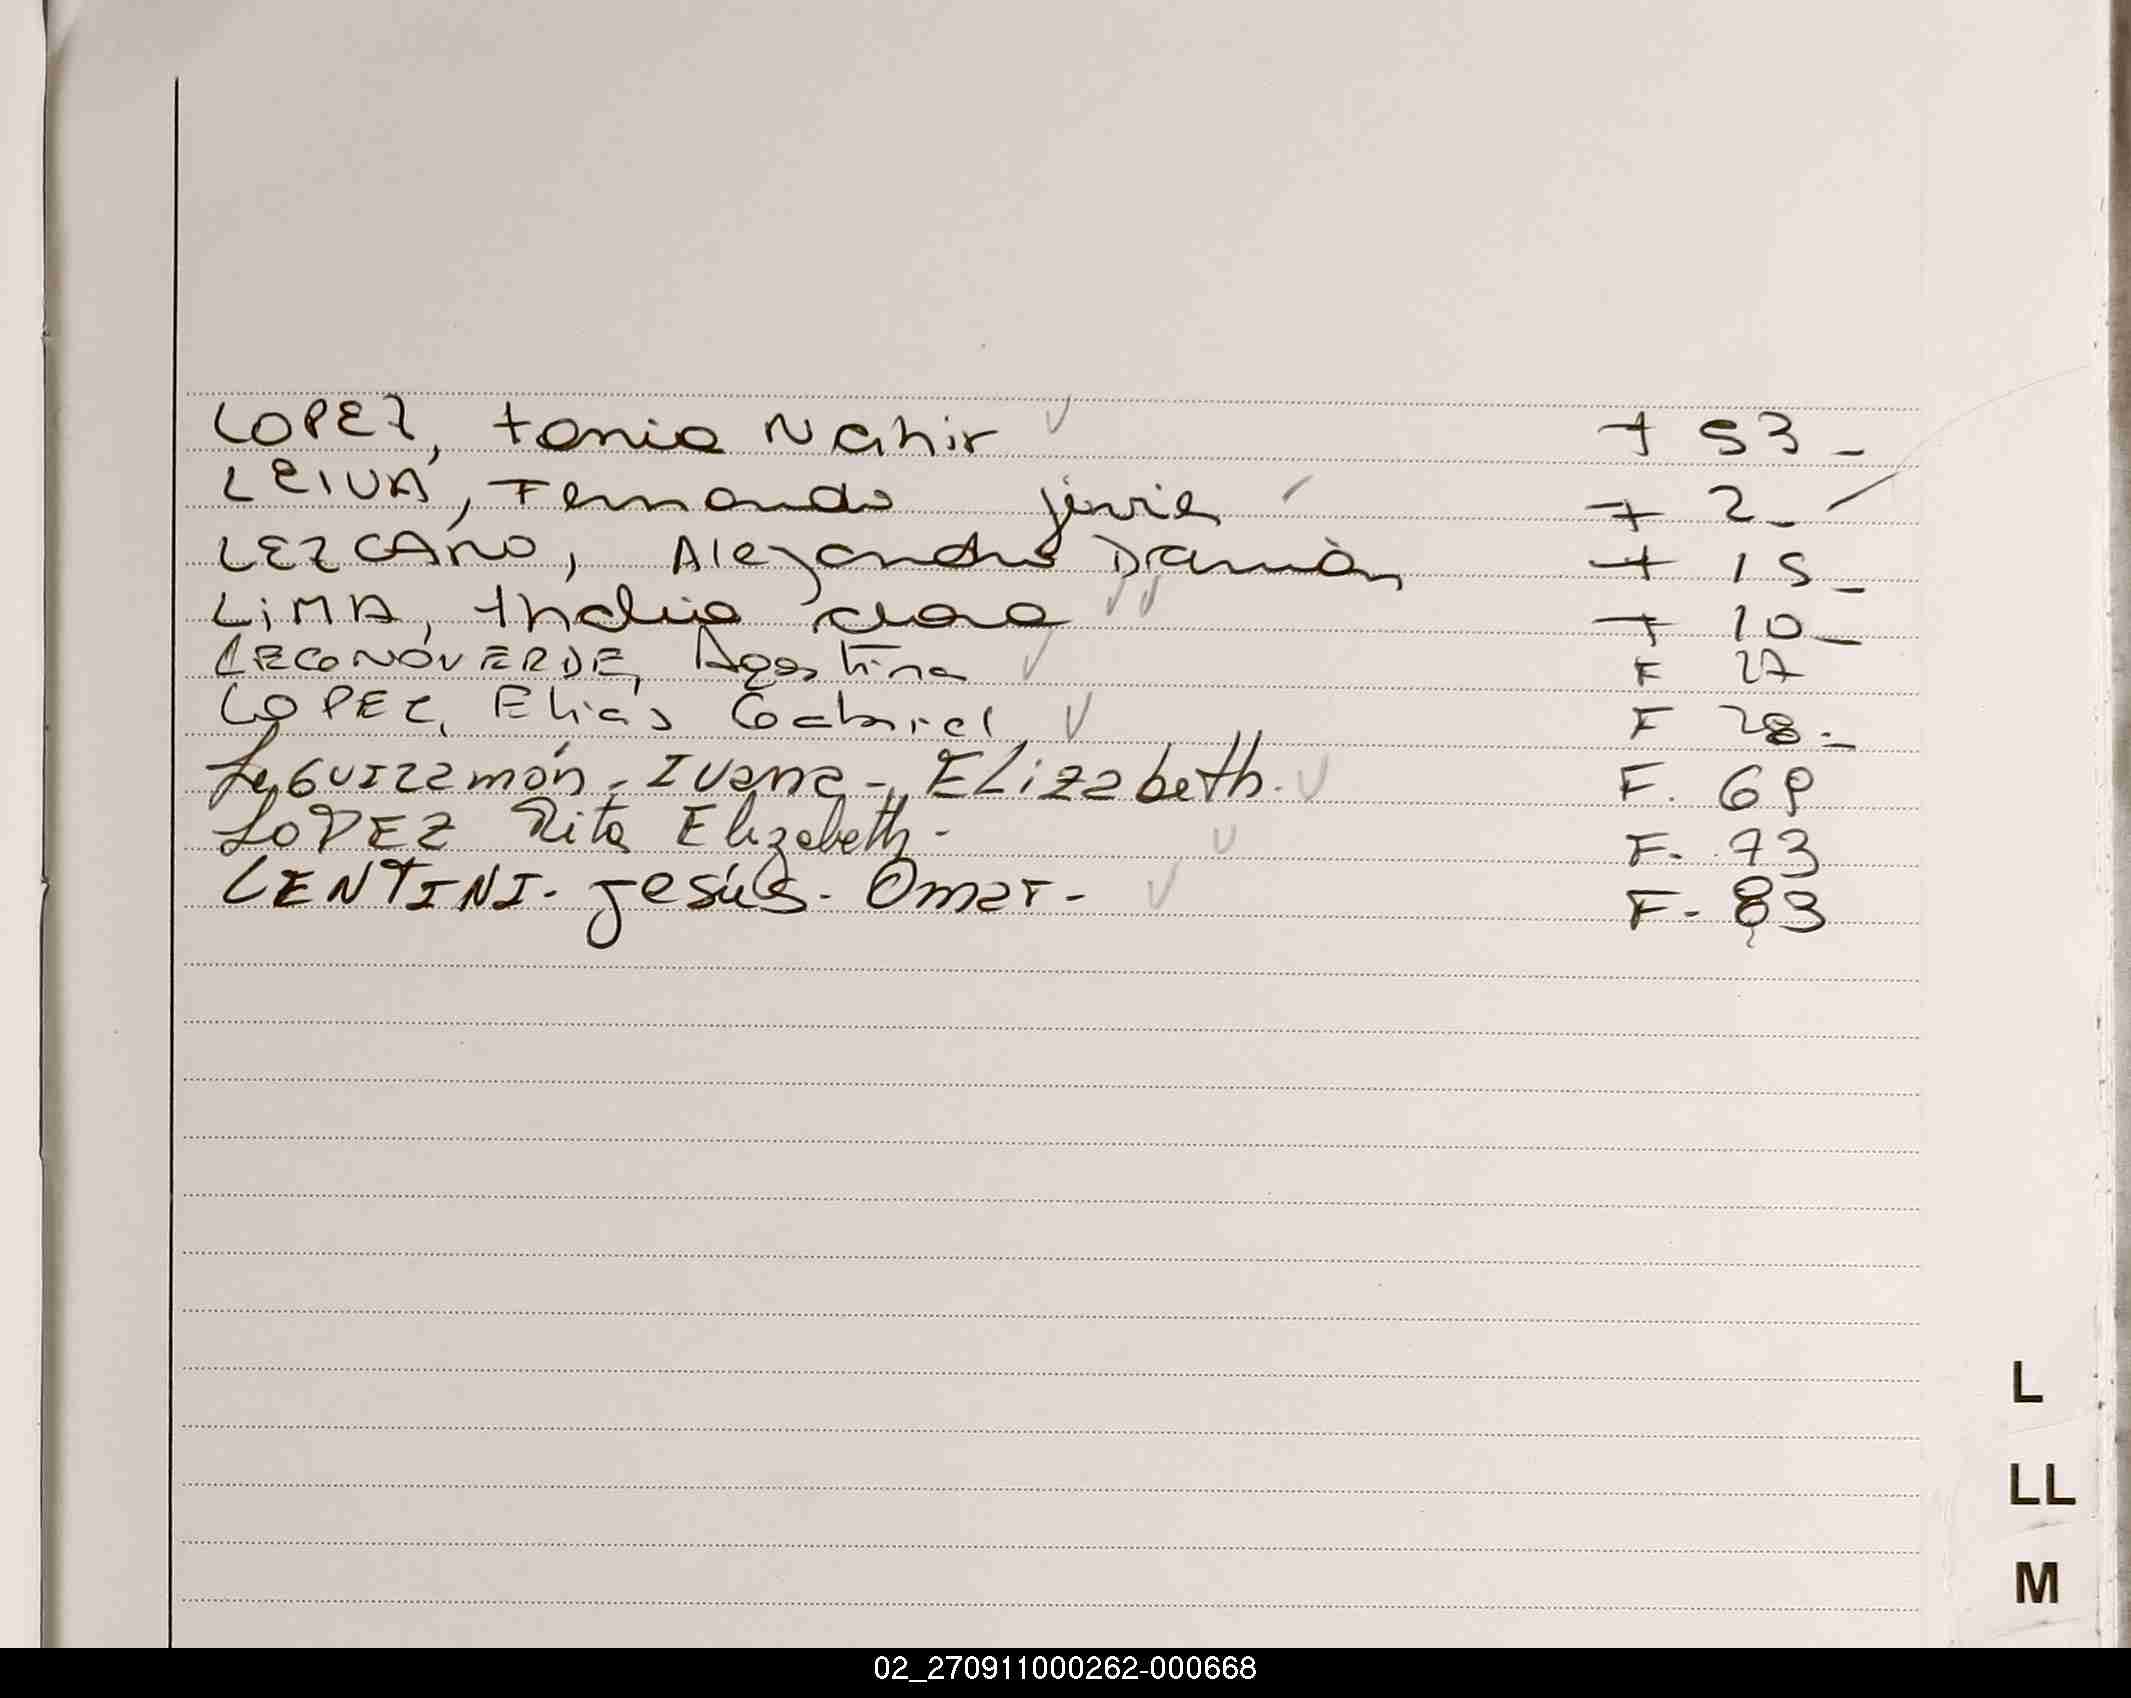 LOPEZ, Tania Nahir + 53 -
LEIVA, Fernando + 2 -
LEZCANO, Alejandro Damián + 15 -
LiMA, thalia + 10 -
LECONOVERDE, Agostina F 27
LOPEZ, Elias Gabriel F 28.-
Leguizamón - Ivana - Elizabeth. F. 69
LOPEZ Rita Elizabeth - F. 73
LENTINI - Jesús - Omar - F - 83
L
LL
M
02_270911000262-000668